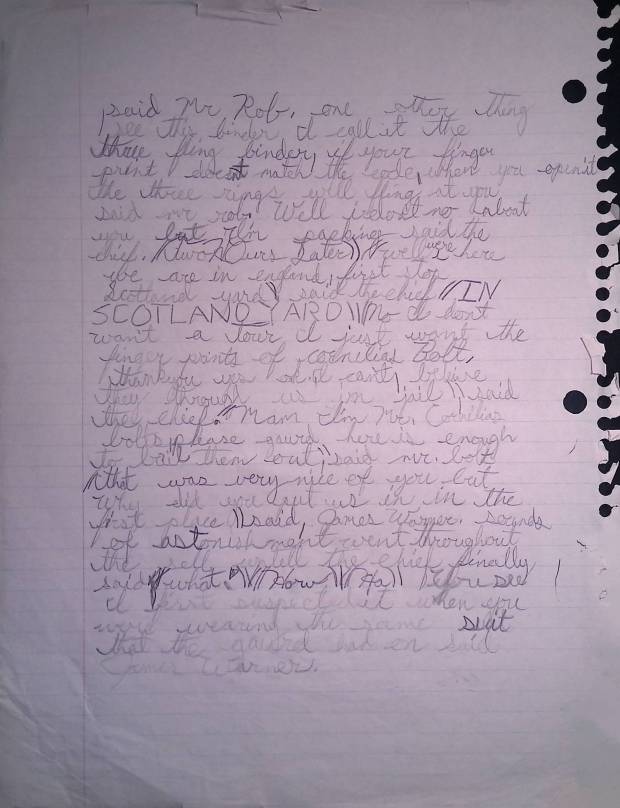 said Mr Rob, one other thing
see this binder I call it the
three fling binder, if your finger
print doesnt match the code, when you open it
the three rings will fling at you
said mr rob. Well i dont no about
you but I'm packing said the
chief. "two Ours Later" "well were here
we are in england, first stop
Scotland yard" said the chief "IN
SCOTLAND YARD" "No I dont
want a tour I just want the
finger prints of cornelias Bolt,
thankyou
they through us in jail" said
the chief. "Mam I'm Mr. Cornelias
bolts, please gaurd here is enough
to bail them out," said mr. bolts
"that was very nice of you but
why did you put us in in the
first place" said, James Warner. sounds
of astonishment went throughout
the sell untill the chief finally
said "what." "How" "Ha" "You see
I first suspected it when you
were wearing the same suit
that the gaurd had on said
James Warner.